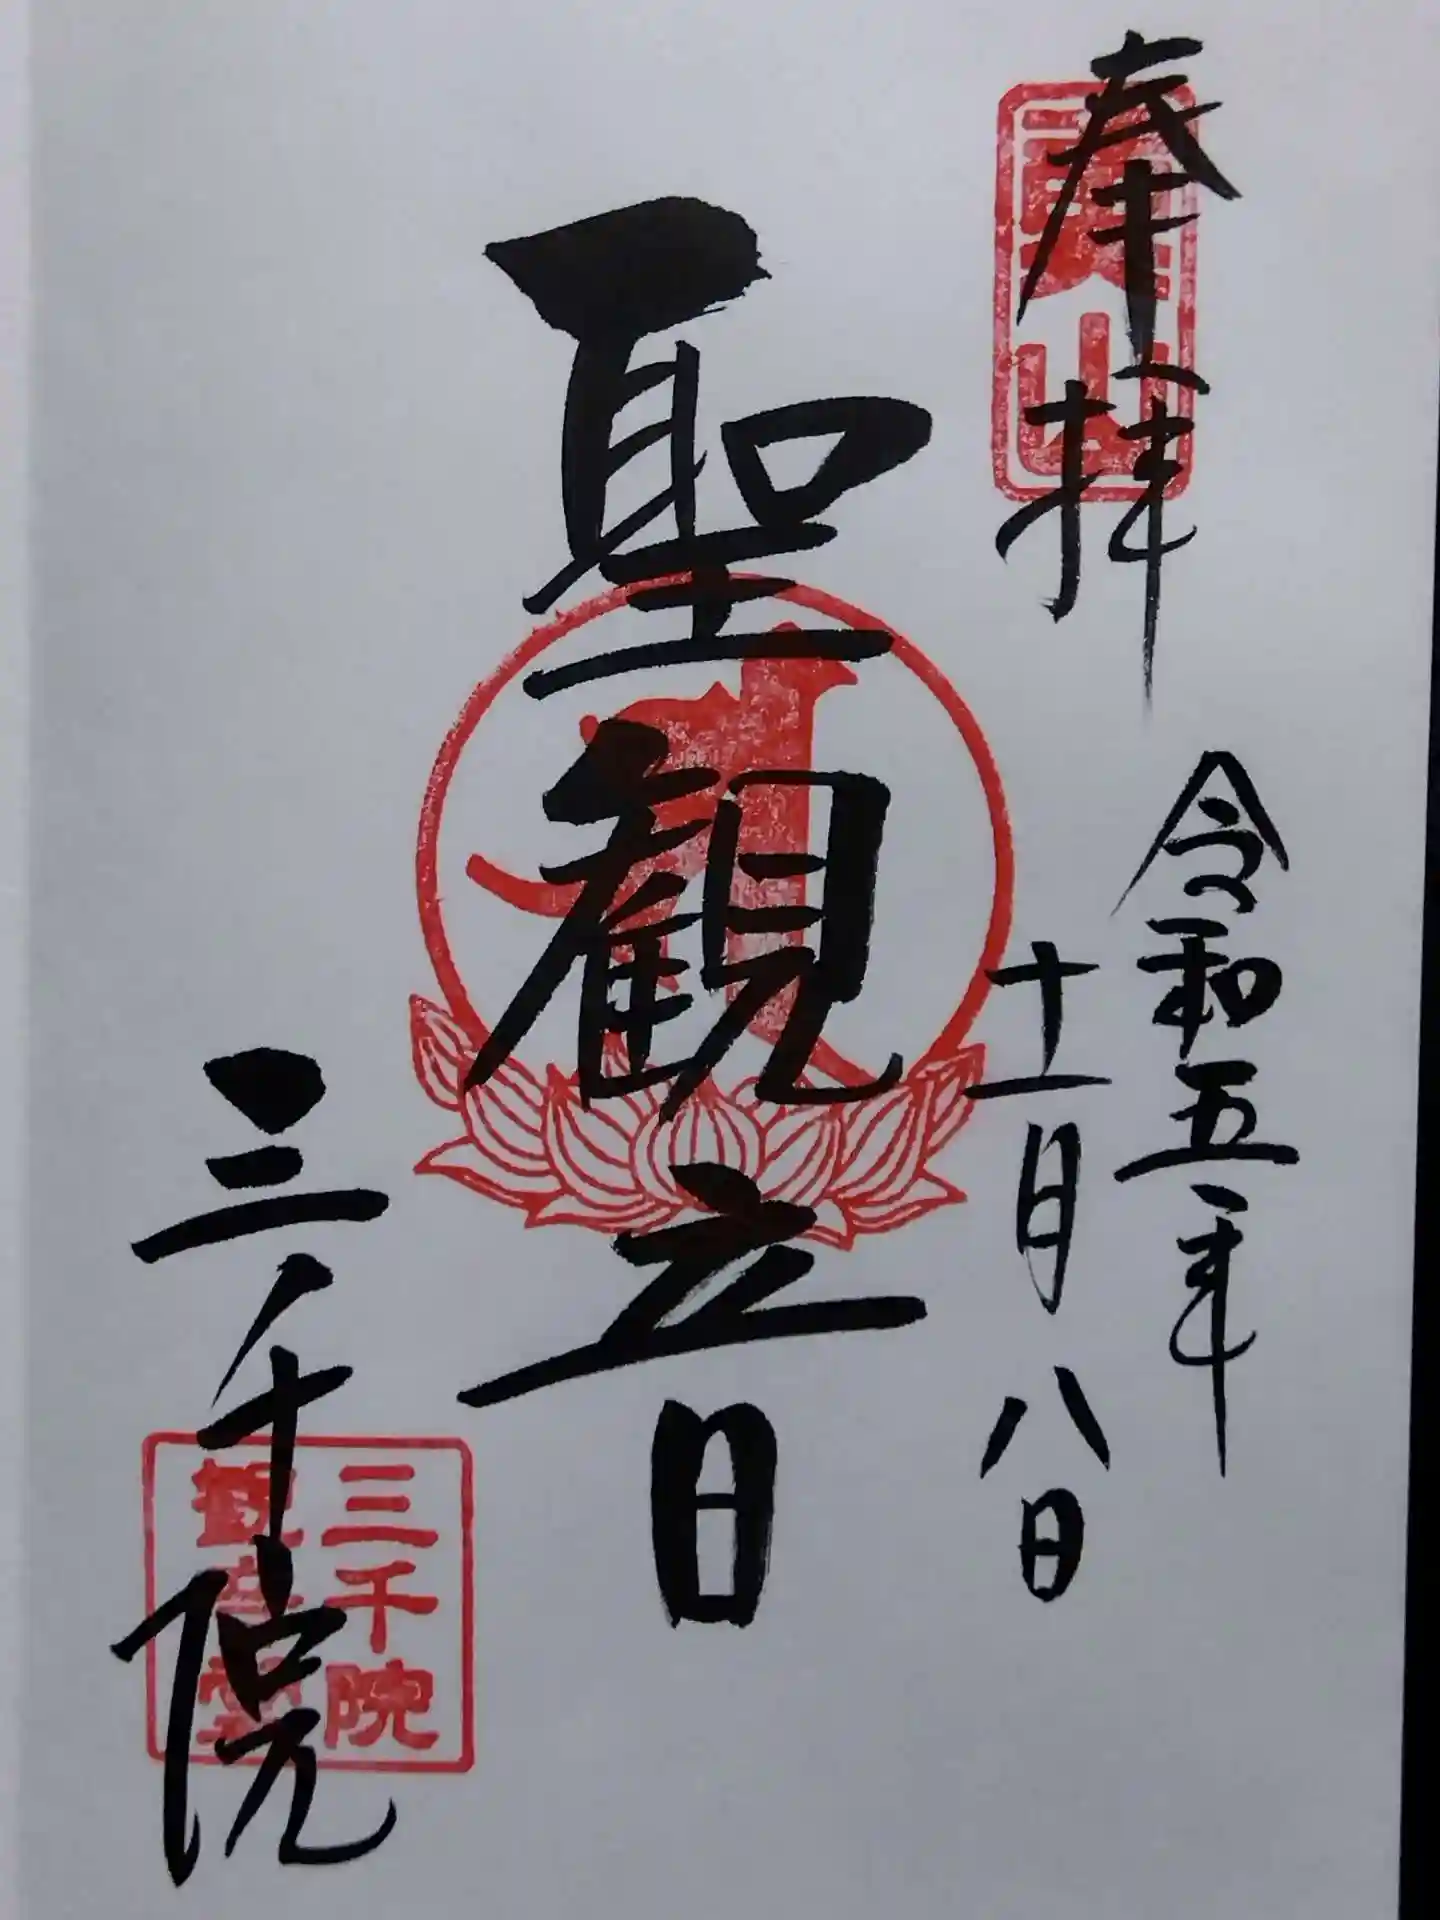 奉拝
令和五年
十一月八日
聖観音
三千院
三千院
観音堂